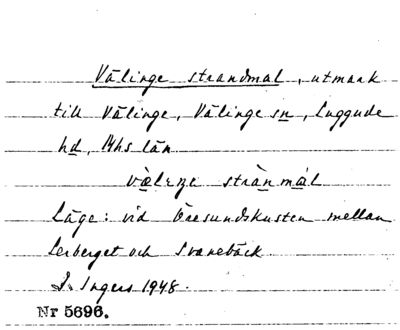 Välinge strandmal, utmark
till Välinge, Välinge sn, Luggude
hd, Mhs län
Läge: vid Öresundskusten mellan
Lerberget och Svanebäck
I. Ingers 1948.
Nr 5696.